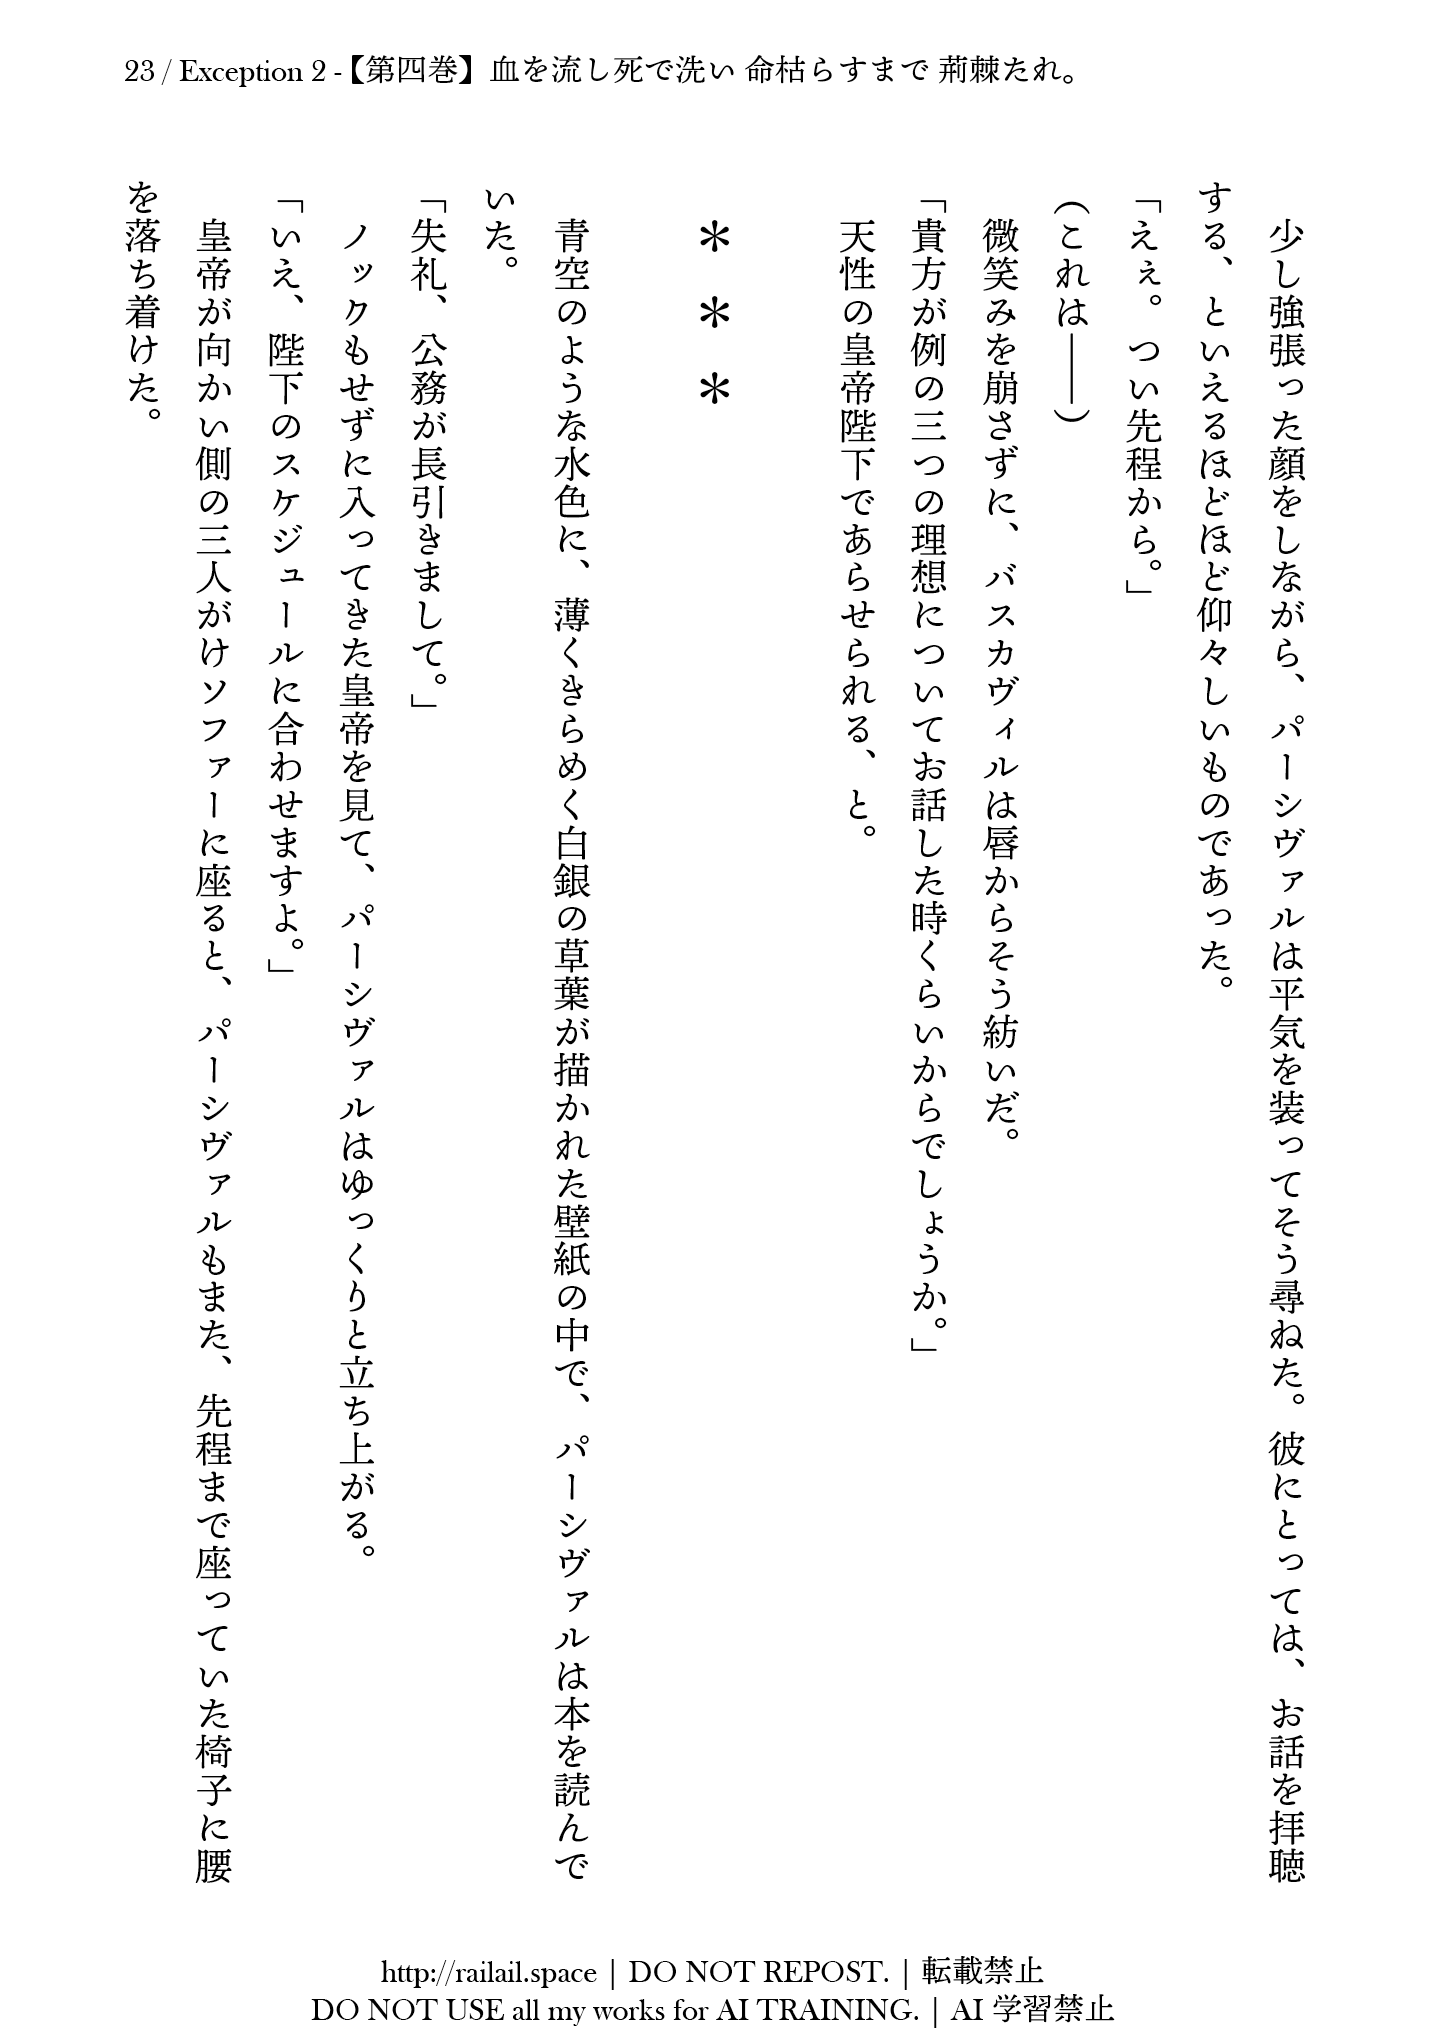 23 / Exception 2 -【第四巻】血を流し死で洗い 命枯らすまで 荊棘たれ。
少し強張った顔をしながら、パーシヴァルは平気を装ってそう尋ねた。彼にとっては、お話を拝聴
する、といえるほどほど仰々しいものであった。
「えぇ。つい先程から。」
(これは――)
微笑みを崩さずに、バスカヴィルは唇からそう紡いだ。
「貴方が例の三つの理想についてお話した時くらいからでしょうか。」
天性の皇帝陛下であらせられる、と。
＊ ＊ ＊
青空のような水色に、薄くきらめく白銀の草葉が描かれた壁紙の中で、パーシヴァルは本を読んで
いた。
「失礼、公務が長引きまして。」
ノックもせずに入ってきた皇帝を見て、パーシヴァルはゆっくりと立ち上がる。
「いえ、陛下のスケジュールに合わせますよ。」
皇帝が向かい側の三人がけソファーに座ると、パーシヴァルもまた、先程まで座っていた椅子に腰
を落ち着けた。
http://railail.space | DO NOT REPOST. | 転載禁止
DO NOT USE all my works for AI TRAINING. | AI 学習禁止